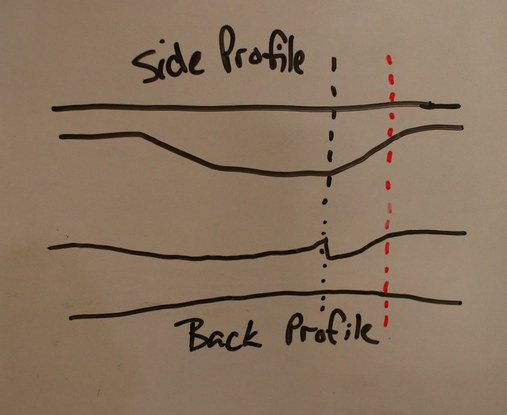 Side Profile
Back Profile